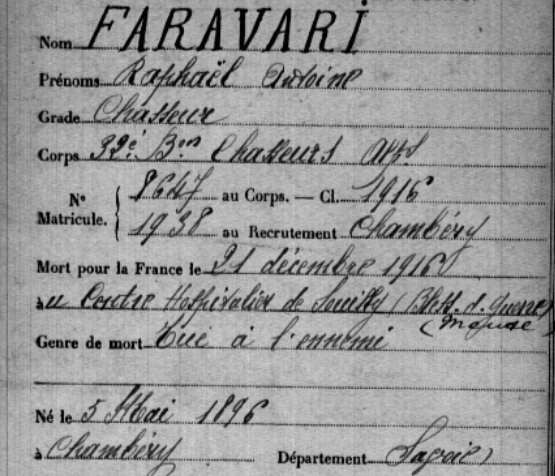 Nom FARAVARI
Prénoms Raphaël Antoine
Grade Chasseur
Corps 32e Bon Chasseurs Alps
N° Matricule. 8647 au Corps. — Cl. 1916
1938 au Recrutement Chambéry
Mort pour la France le 21 décembre 1916
à u Centre Hospitalier de Souilly (Bless. d. guerre)
(Meuse
Genre de mort Tué à l'ennemi
Né le 5 Mai 1896
à Chambéry Département Savoie